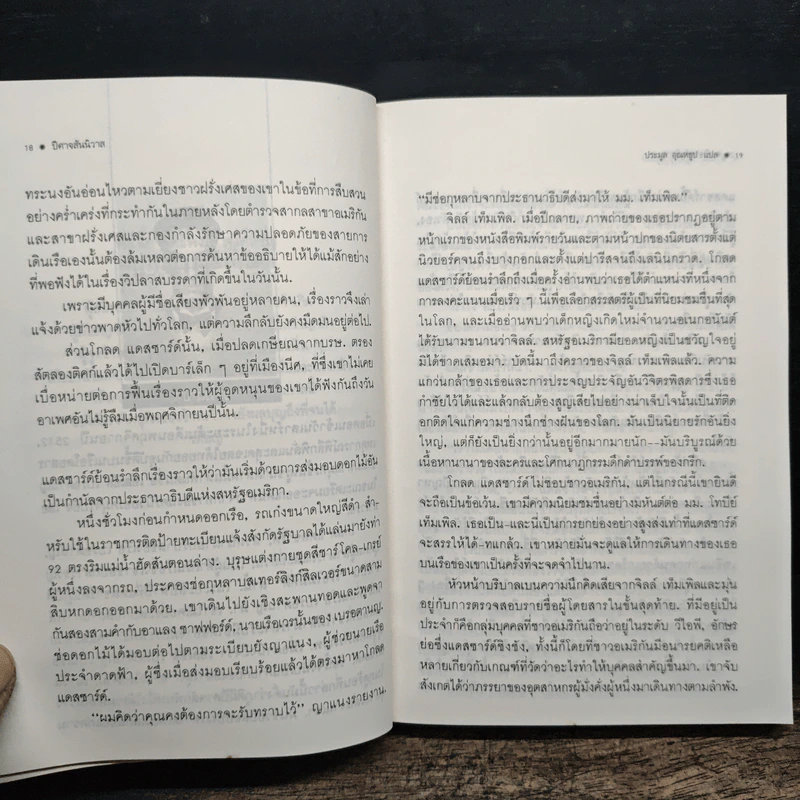 18 ● ปีศาจสันนิวาส
ทระนงอันอ่อนไหวตามเยี่ยงชาวฝรั่งเศสของเขาในข้อที่การสืบสวน
อย่างคร่ำเคร่งที่กระทำกันในภายหลังโดยตำรวจสากลสาขาอเมริกัน
และสาขาฝรั่งเศสและกองกำลังรักษาความปลอดภัยของสายการ
เดินเรือเองนั้นต้องล้มเหลวต่อการค้นหาข้ออธิบายให้ได้แม้สักอย่าง
ที่พอฟังได้ในเรื่องวิปลาสบรรดาที่เกิดขึ้นในวันนั้น
เพราะมีบุคคลผู้มีชื่อเสียงพัวพันอยู่หลายคน, เรื่องราวจึงเล่า
แจ้งด้วยข่าวพาดหัวไปทั่วโลก, แต่ความลึกลับยังคงมืดมนอยู่ต่อไป.
ส่วนโกลด แดสซาร์ด์นั้น, เมื่อปลดเกษียณจากบรษ. ตรอง
สัตลองติคก์แล้วได้ไปเปิดบาร์เล็ก ๆ อยู่ที่เมืองนีศ, ที่ซึ่งเขาไม่เคย
เบื่อหน่ายต่อการฟื้นเรื่องราวให้ผู้อุดหนุนของเขาได้ฟังกันถึงวัน
อาเพศอันไม่รู้ลืมเมื่อพฤศจิกายนปีนั้น.
แดสซาร์ด์ย้อนรำลึกเรื่องราวให้ว่ามันเริ่มด้วยการส่งมอบดอกไม้อัน
เป็นกำนัลจากประธานาธิบดีแห่งสหรัฐอเมริกา.
หนึ่งชั่วโมงก่อนกำหนดออกเรือ, รถเก๋งขนาดใหญ่สีดำ สำ-
หรับใช้ในราชการติดป้ายทะเบียนแจ้งสังกัดรัฐบาลได้แล่นมายังท่า
92 ตรงริมแม่น้ำฮัดสันตอนล่าง. บุรุษแต่งกายชุดสีชาร์โคล-เกรย์
ผู้หนึ่งลงจากรถ, ประคองช่อกุหลาบสเทอร์ลิงก์สิลเวอร์ขนาดสาม
สิบหกดอกออกมาด้วย. เขาเดินไปยังเชิงสะพานทอดและพูดจา
กันสองสามคำกับอาแลง ซาฟฟอร์ด์, นายเรือเวรนั้นของ เบรอตานญ.
ช่อดอกไม้ได้มอบต่อไปตามระเบียบยังญาแนง, ผู้ช่วยนายเรือ
ประจำดาดฟ้า, ผู้ซึ่งเมื่อส่งมอบเรียบร้อยแล้วได้ตรงมาหาโกลด
แดสซาร์ด์.
"ผมคิดว่าคุณคงต้องการจะรับทราบไว้" ญาแนงรายงาน,
ประมูล อุณหธูป แปล ● 19
"มีช่อกุหลาบจากประธานาธิบดีส่งมาให้ มม. เท็มเพิล."
จิลล์ เท็มเพิล. เมื่อปีกลาย, ภาพถ่ายของเธอปรากฏอยู่ตาม
หน้าแรกของหนังสือพิมพ์รายวันและตามหน้าปกของนิตยสารตั้งแต่
นิวยอร์คจนถึงบางกอกและตั้งแต่ปารีสจนถึงเลนินกราด. โกลด
แดสซาร์ด์ย้อนรำลึกถึงเมื่อครั้งอ่านพบว่าเธอได้ตำแหน่งที่หนึ่งจาก
การลงคะแนนเมื่อเร็ว ๆ นี้เพื่อเลือกสรรสตรีผู้เป็นที่นิยมชมชื่นที่สุด
ในโลก, และเมื่ออ่านพบว่าเด็กหญิงเกิดใหม่จำนวนอเนกอนันต์
ได้รับนามขนานว่าจิลล์. สหรัฐอเมริกามียอดหญิงเป็นขวัญใจอยู่
มิได้ขาดเสมอมา. บัดนี้มาถึงคราวของจิลล์ เท็มเพิลแล้ว. ความ
แกว่นกล้าของเธอและการประจญประจัญอันวิจิตรพิสดารซึ่งเธอ
กำชัยไว้ได้และแล้วกลับต้องสูญเสียไปอย่างน่าเจ็บใจนั้นเป็นที่ติด
อกติดใจแก่ความช่างนึกช่างฝันของโลก. มันเป็นนิยายรักอันยิ่ง
ใหญ่, แต่ก็ยังเป็นยิ่งกว่านั้นอยู่อีกมากมายนัก--มันบริบูรณ์ด้วย
เนื้อหานานาของละครและโศกนาฏกรรมดึกดำบรรพ์ของกรีก.
โกลด แดสซาร์ด์ไม่ชอบชาวอเมริกัน, แต่ในกรณีนี้เขายินดี
จะถือเป็นข้อเว้น. เขามีความนิยมชมชื่นอย่างมหันต์ต่อ มม. โทบีย์
เท็มเพิล. เธอเป็น-และนี่เป็นการยกย่องอย่างสูงส่งเท่าที่แดสซาร์ด์
จะสรรให้ได้-ทแกล้ว. เขาหมายมั่นจะดูแลให้การเดินทางของเธอ
บนเรือของเขาเป็นครั้งที่จะจดจำไปนาน.
หัวหน้าบริบาลเบนความนึกคิดเสียจากจิลล์ เท็มเพิลและมุ่น
อยู่กับการตรวจสอบรายชื่อผู้โดยสารในขั้นสุดท้าย. ที่มีอยู่เป็น
ประจำก็คือกลุ่มบุคคลที่ชาวอเมริกันถือว่าอยู่ในระดับ วีไอพี, อักษร
ย่อซึ่งแดสซาร์ด์ชิงชัง, ทั้งนี้ก็โดยที่ชาวอเมริกันมีอนารยคติเหลือ
หลายเกี่ยวกับเกณฑ์ที่วัดว่าอะไรทำให้บุคคลสำคัญขึ้นมา. เขาจับ
สังเกตได้ว่าภรรยาของอุตสาหกรผู้มั่งคั่งผู้หนึ่งมาเดินทางตามลำพัง.